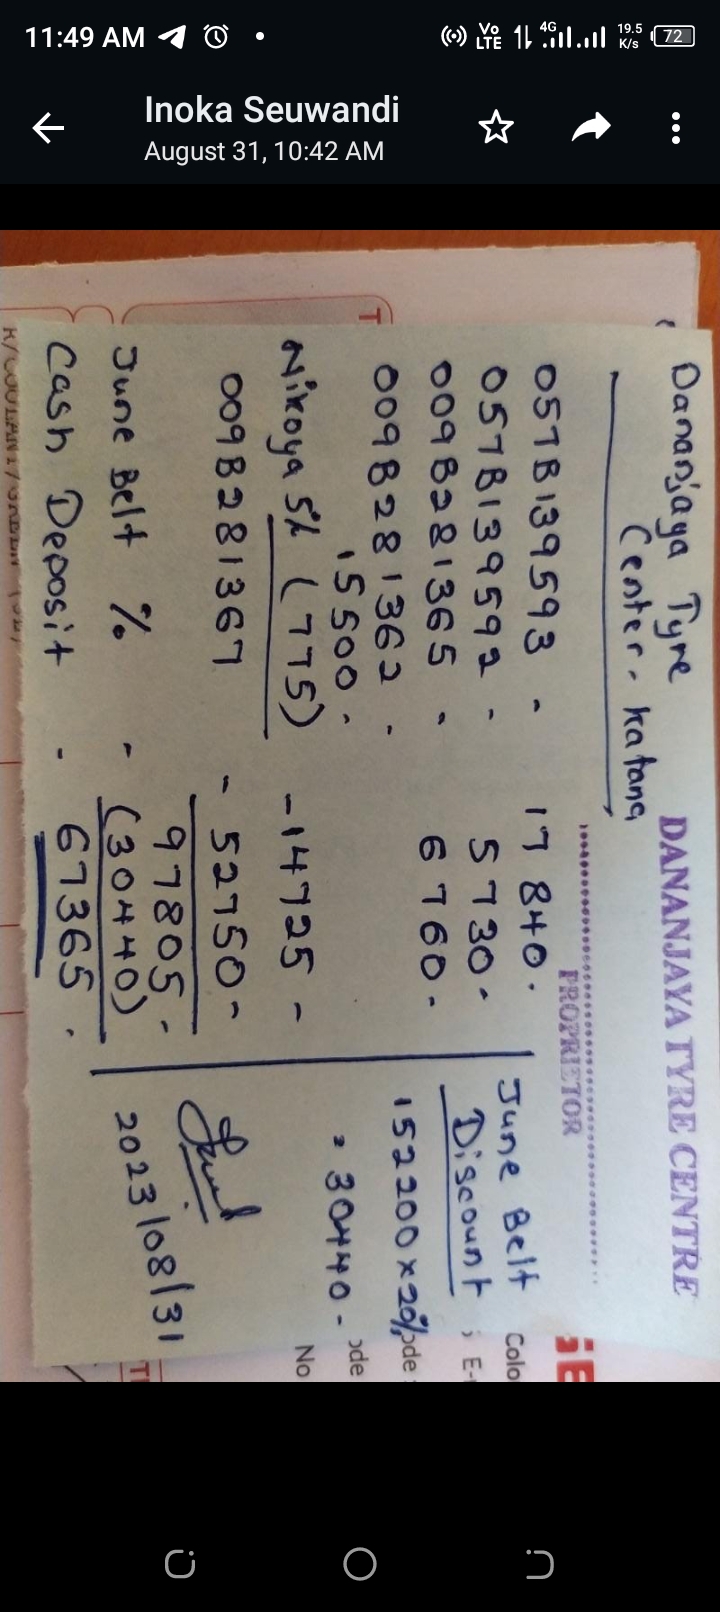 11:49 AM
Vo LTE 4G 19.5 K/s 72
Inoka Seuwandi
August 31, 10:42 AM
Dananjaya Tyre
Center. Katana
DANANJAYA TYRE CENTRE
PROPRIETOR
057B139593 - 17840.
057B139592 - 5730.
009B281365 - 6760.
009B281362 -
15500.
Nikoya 5% (775) - 14725 -
009B281367 - 52750 -
97805 -
June Belt % - (30440)
Cash Deposit - 67365.
June Belt
Discount
152200 x 20%
= 30440 -
2023/08/31
Colo
E-
ode
ode
No